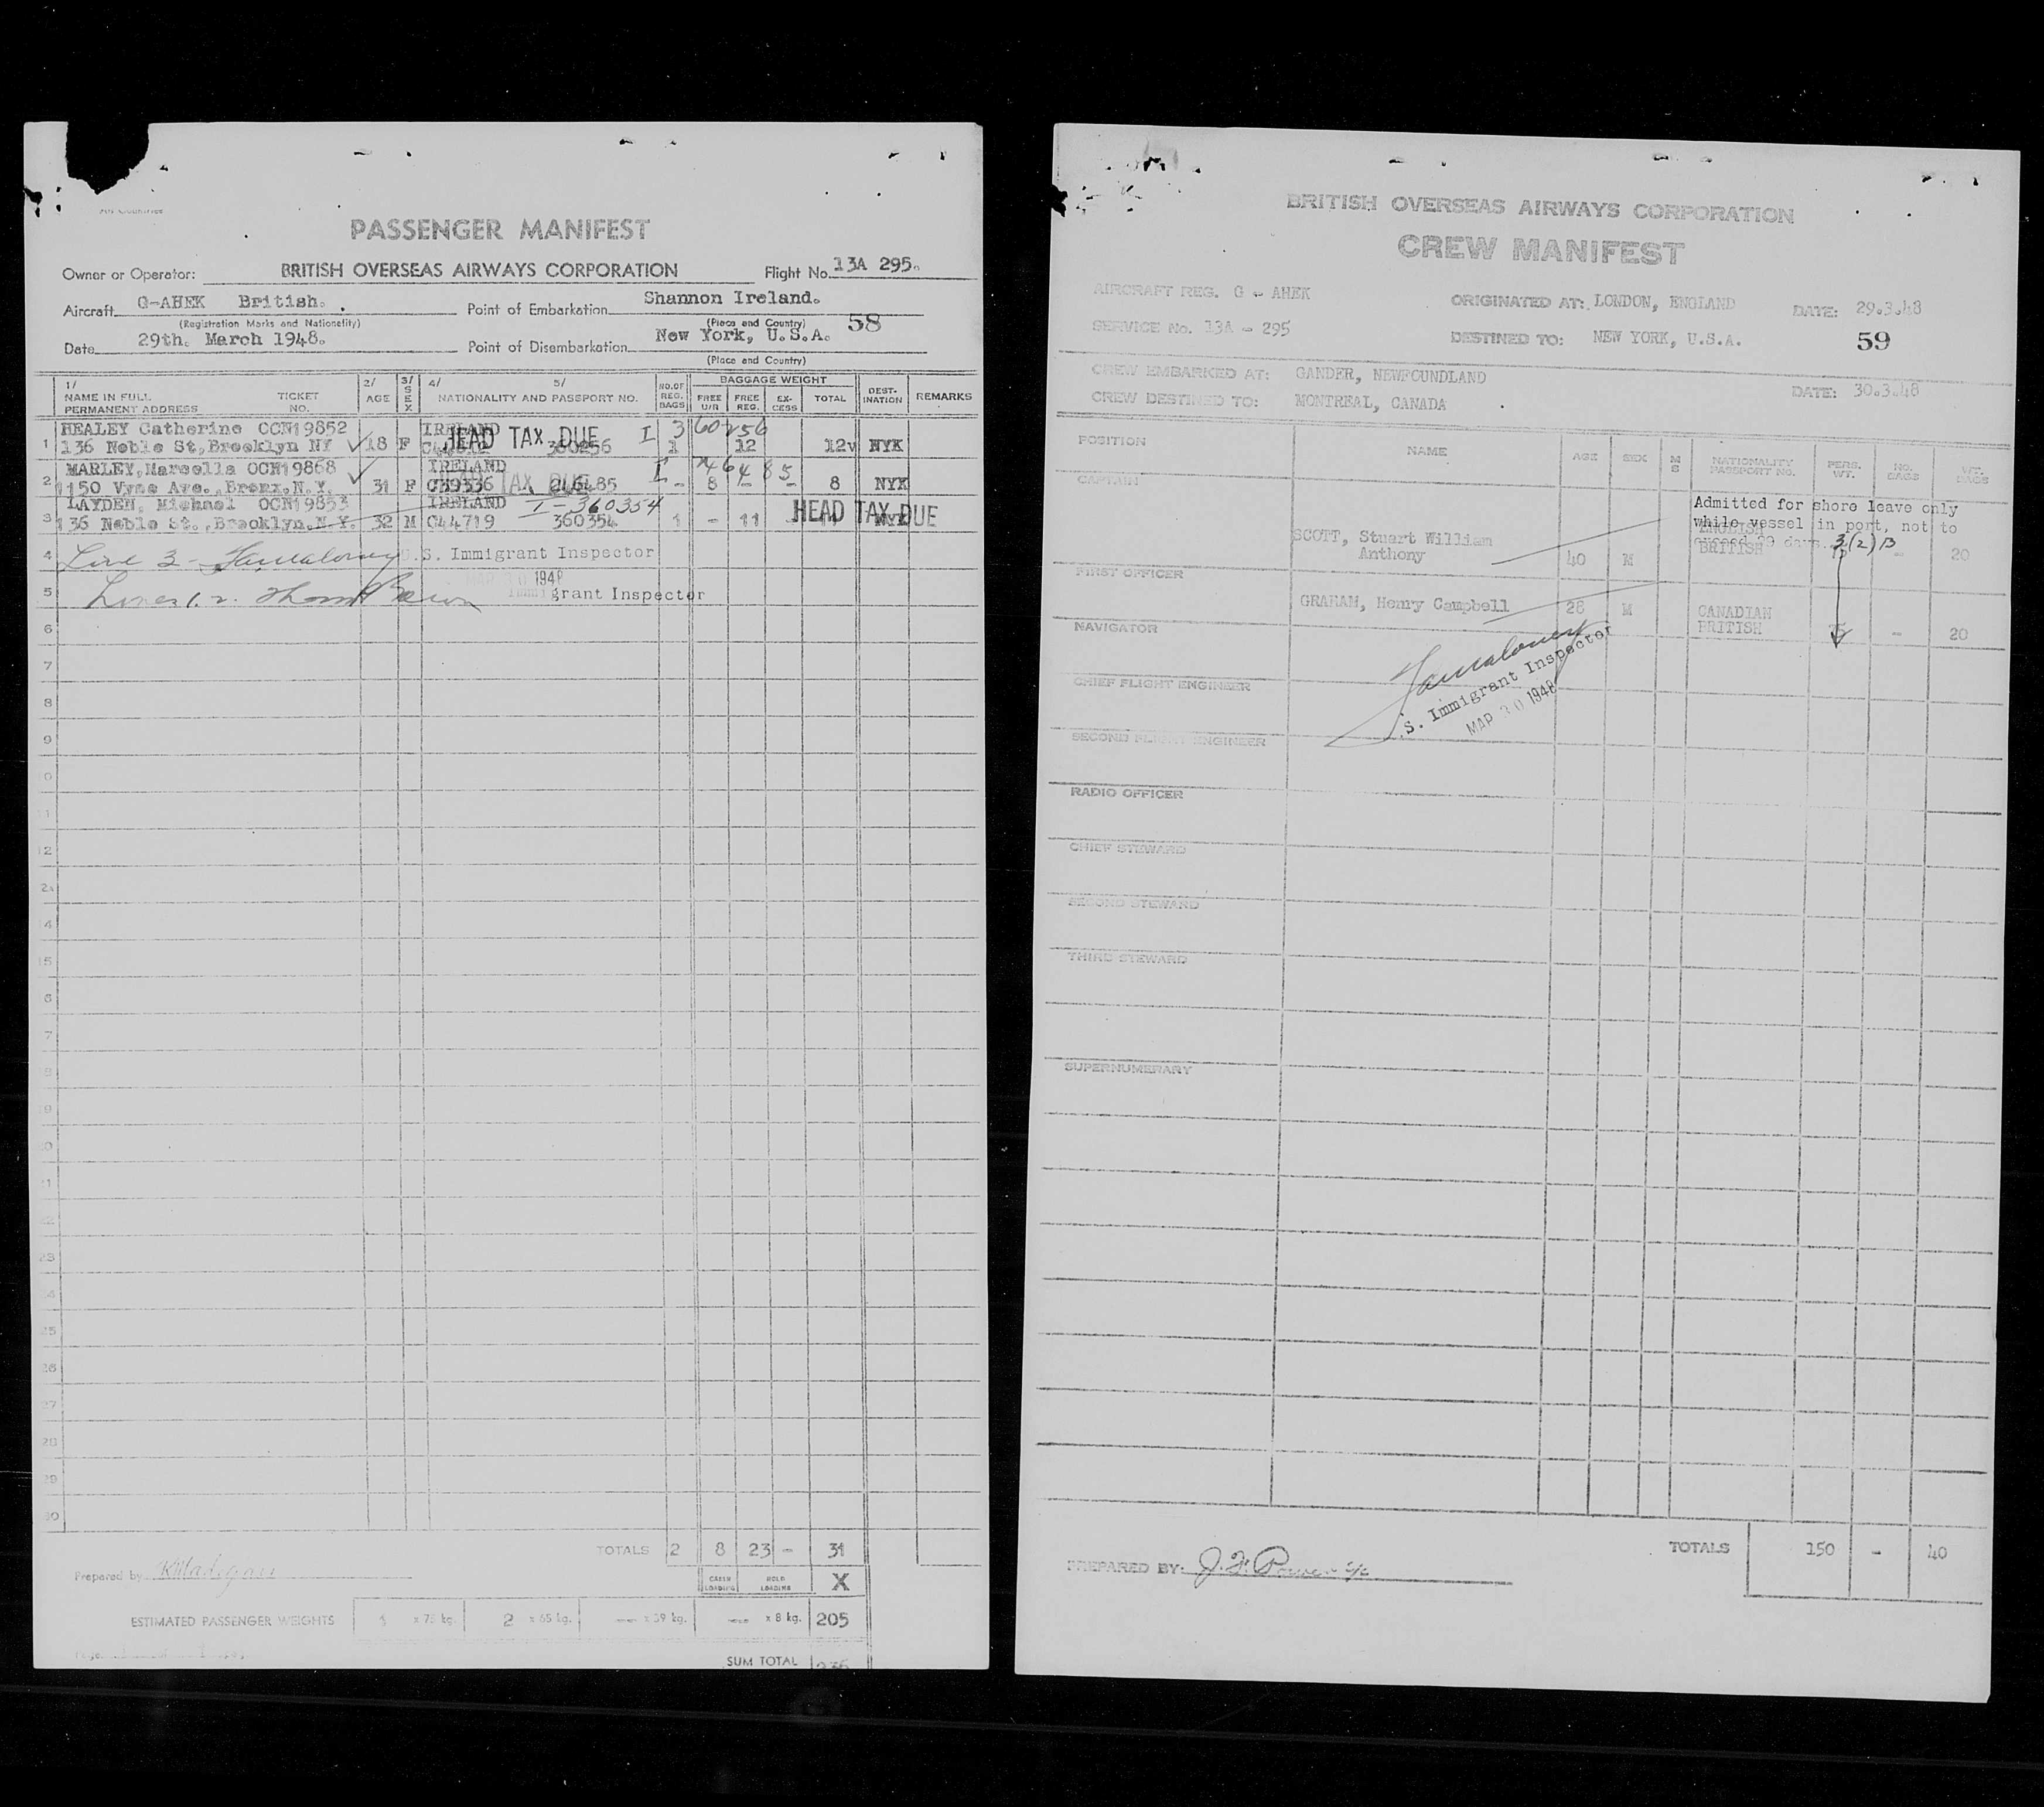 PASSENGER MANIFEST
Owner or Operator: BRITISH OVERSEAS AIRWAYS CORPORATION Flight No. 13A 295.
Aircraft G-AHEK British. Point of Embarkation Shannon Ireland.
(Registration Marks and Nationality) (Place and Country) 58
Date 29th. March 1948. Point of Disembarkation New York, U.S.A.
(Place and Country)
1/ NAME IN FULL PERMANENT ADDRESS TICKET NO. 2/ AGE 3/ SEX 4/ 5/ NATIONALITY AND PASSPORT NO. NO. OF REG. BAGS BAGGAGE WEIGHT FREE U/R FREE REG. EX-CESS TOTAL DEST-INATION REMARKS
HEALEY Catherine OCN19852 IRELAND I 360256
1 136 Noble St, Brooklyn NY 18 F HEAD TAX DUE 360256 1 12 12 NYK
MARLEY, Marcella OCN19868 IRELAND I
2 1150 Vyse Ave., Bronx, N.Y. 31 F TAX DUE - 8 - - 8 NYK
LAYDEN, Michael OCN19853 IRELAND I-360354
3 136 Noble St., Brooklyn, N.Y. 32 M C44719 360354 1 - 11 HEAD TAX DUE
4 Line 3 - U.S. Immigrant Inspector
1948
5 Lines 1, 2. Immigrant Inspector
6
7
8
9
10
11
12
2A
14
15
16
17
18
19
20
21
22
23
24
25
26
27
28
29
30
TOTALS 2 8 23 - 31
Prepared by
CABIN LOADING HOLD LOADING X
ESTIMATED PASSENGER WEIGHTS 1 x 75 kg. 2 x 65 kg. — x 39 kg. — x 8 kg. 205
SUM TOTAL
BRITISH OVERSEAS AIRWAYS CORPORATION
CREW MANIFEST
AIRCRAFT REG. G - AHEK ORIGINATED AT: LONDON, ENGLAND DATE: 29.3.48
SERVICE No. 13A - 295 DESTINED TO: NEW YORK, U.S.A. 59
CREW EMBARKED AT: GANDER, NEWFOUNDLAND DATE: 30.3.48
CREW DESTINED TO: MONTREAL, CANADA
POSITION NAME AGE SEX M S NATIONALITY PASSPORT NO. PERS. WT. NO. BAGS WT. BAGS
CAPTAIN
Admitted for shore leave only
while vessel in port, not to
exceed 29 days. 3(2)B
SCOTT, Stuart William
Anthony 40 M BRITISH - 20
FIRST OFFICER
GRAHAM, Henry Campbell 28 M CANADIAN
BRITISH 75 - 20
NAVIGATOR
CHIEF FLIGHT ENGINEER
S. Immigrant Inspector
MAR 30 1948
SECOND FLIGHT ENGINEER
RADIO OFFICER
CHIEF STEWARD
SECOND STEWARD
THIRD STEWARD
SUPERNUMERARY
TOTALS 150 - 40
PREPARED BY: